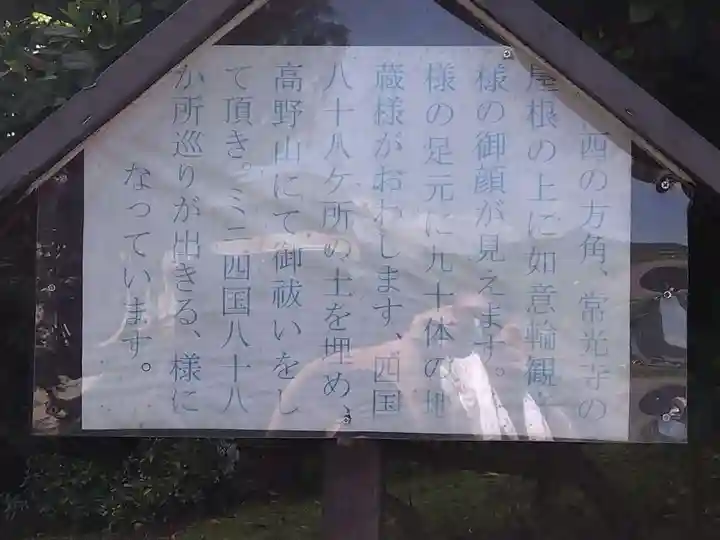 西の方角、常光寺の
屋根の上に如意輪観
様の御顔が見えます。
様の足元に九十体の地
蔵様がおわします、四国
八十八ケ所の土を埋め、
高野山にて御祓いをし
て頂き。ミニ四国八十八
か所巡りが出きる、様に
なっています。